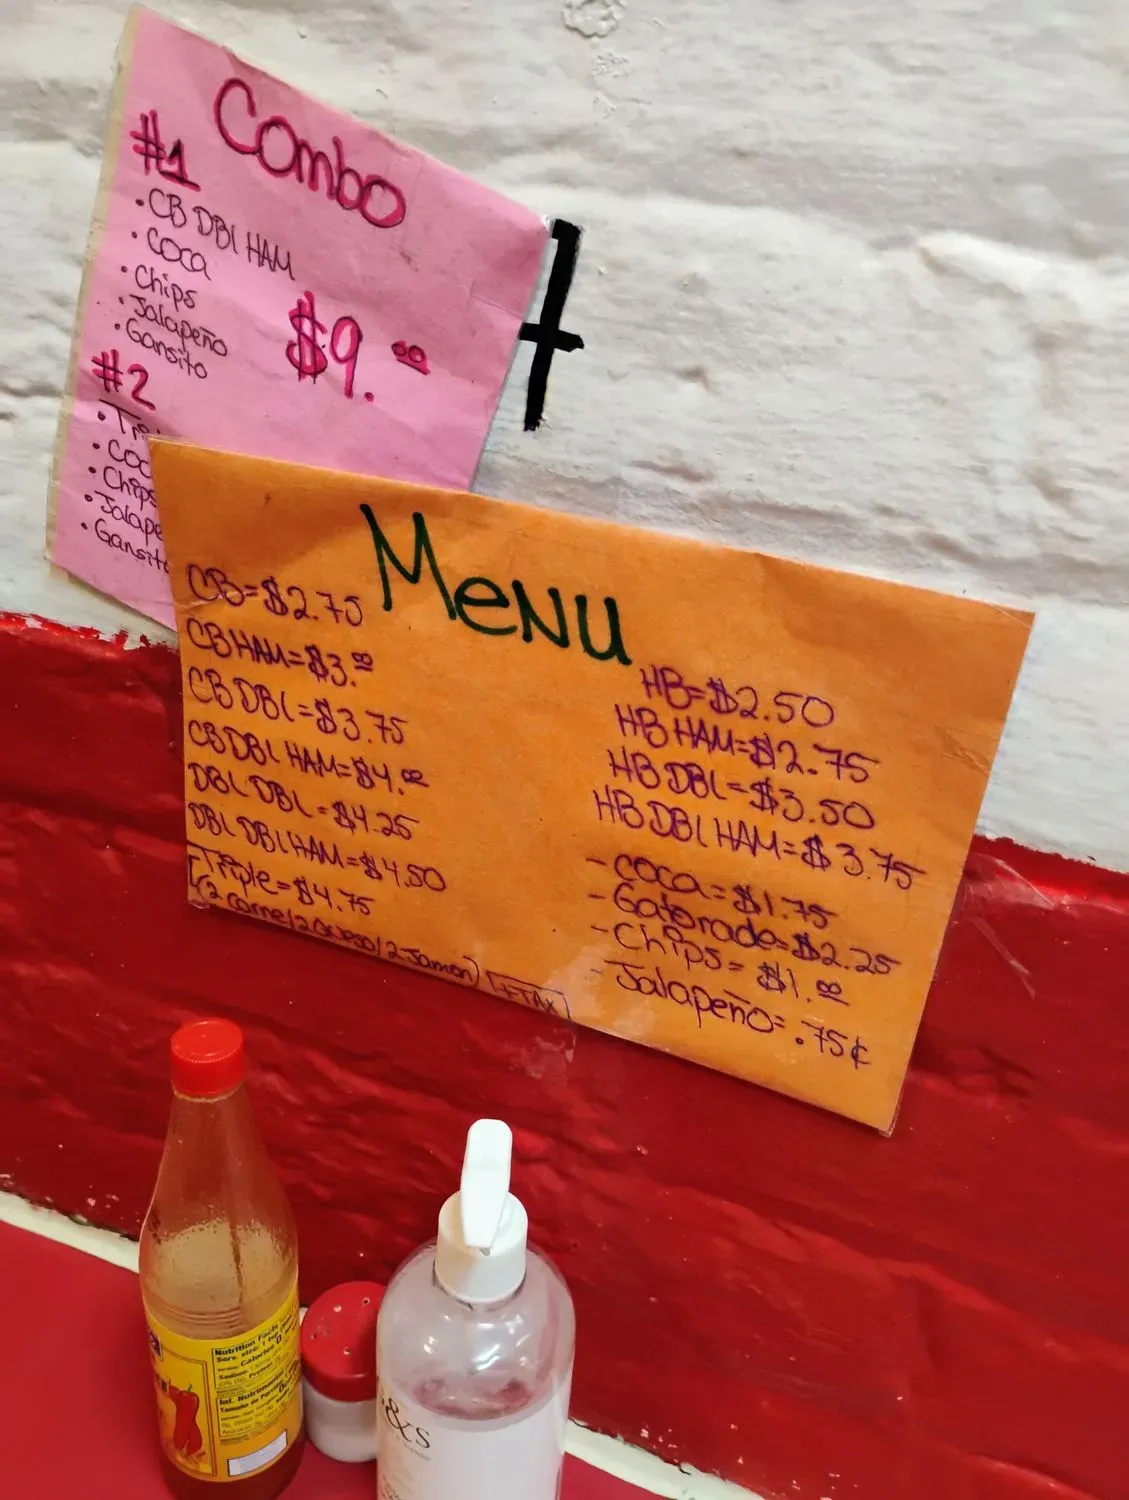 Combo
#1
• CB DBl HAM
• COCA
• Chips
• Jalapeño
• Gansito
$9.00
#2
•
•
• Chips
•
• Gansito
Menu
CB=$2.75
CB HAM=$3.00
CB DBl=$3.75
CB DBl HAM=$4.00
DBl DBl=$4.25
DBl DBl HAM=$4.50
Triple=$4.75
(2 carne/2 Queso/2 Jamon)
+TAX
HB=$2.50
HB HAM=$2.75
HB DBl=$3.50
HB DBl HAM=$3.75
- COCA=$1.75
- Gatorade=$2.25
- Chips=$1.00
- Jalapeño=.75¢
Nutrition Facts
Calories 0
Inf. Nutrimental
&S